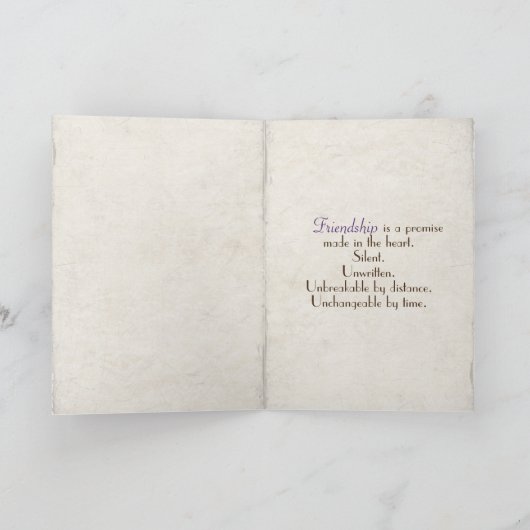 Friendship is a promise
made in the heart.
Silent.
Unwritten.
Unbreakable by distance.
Unchangeable by time.